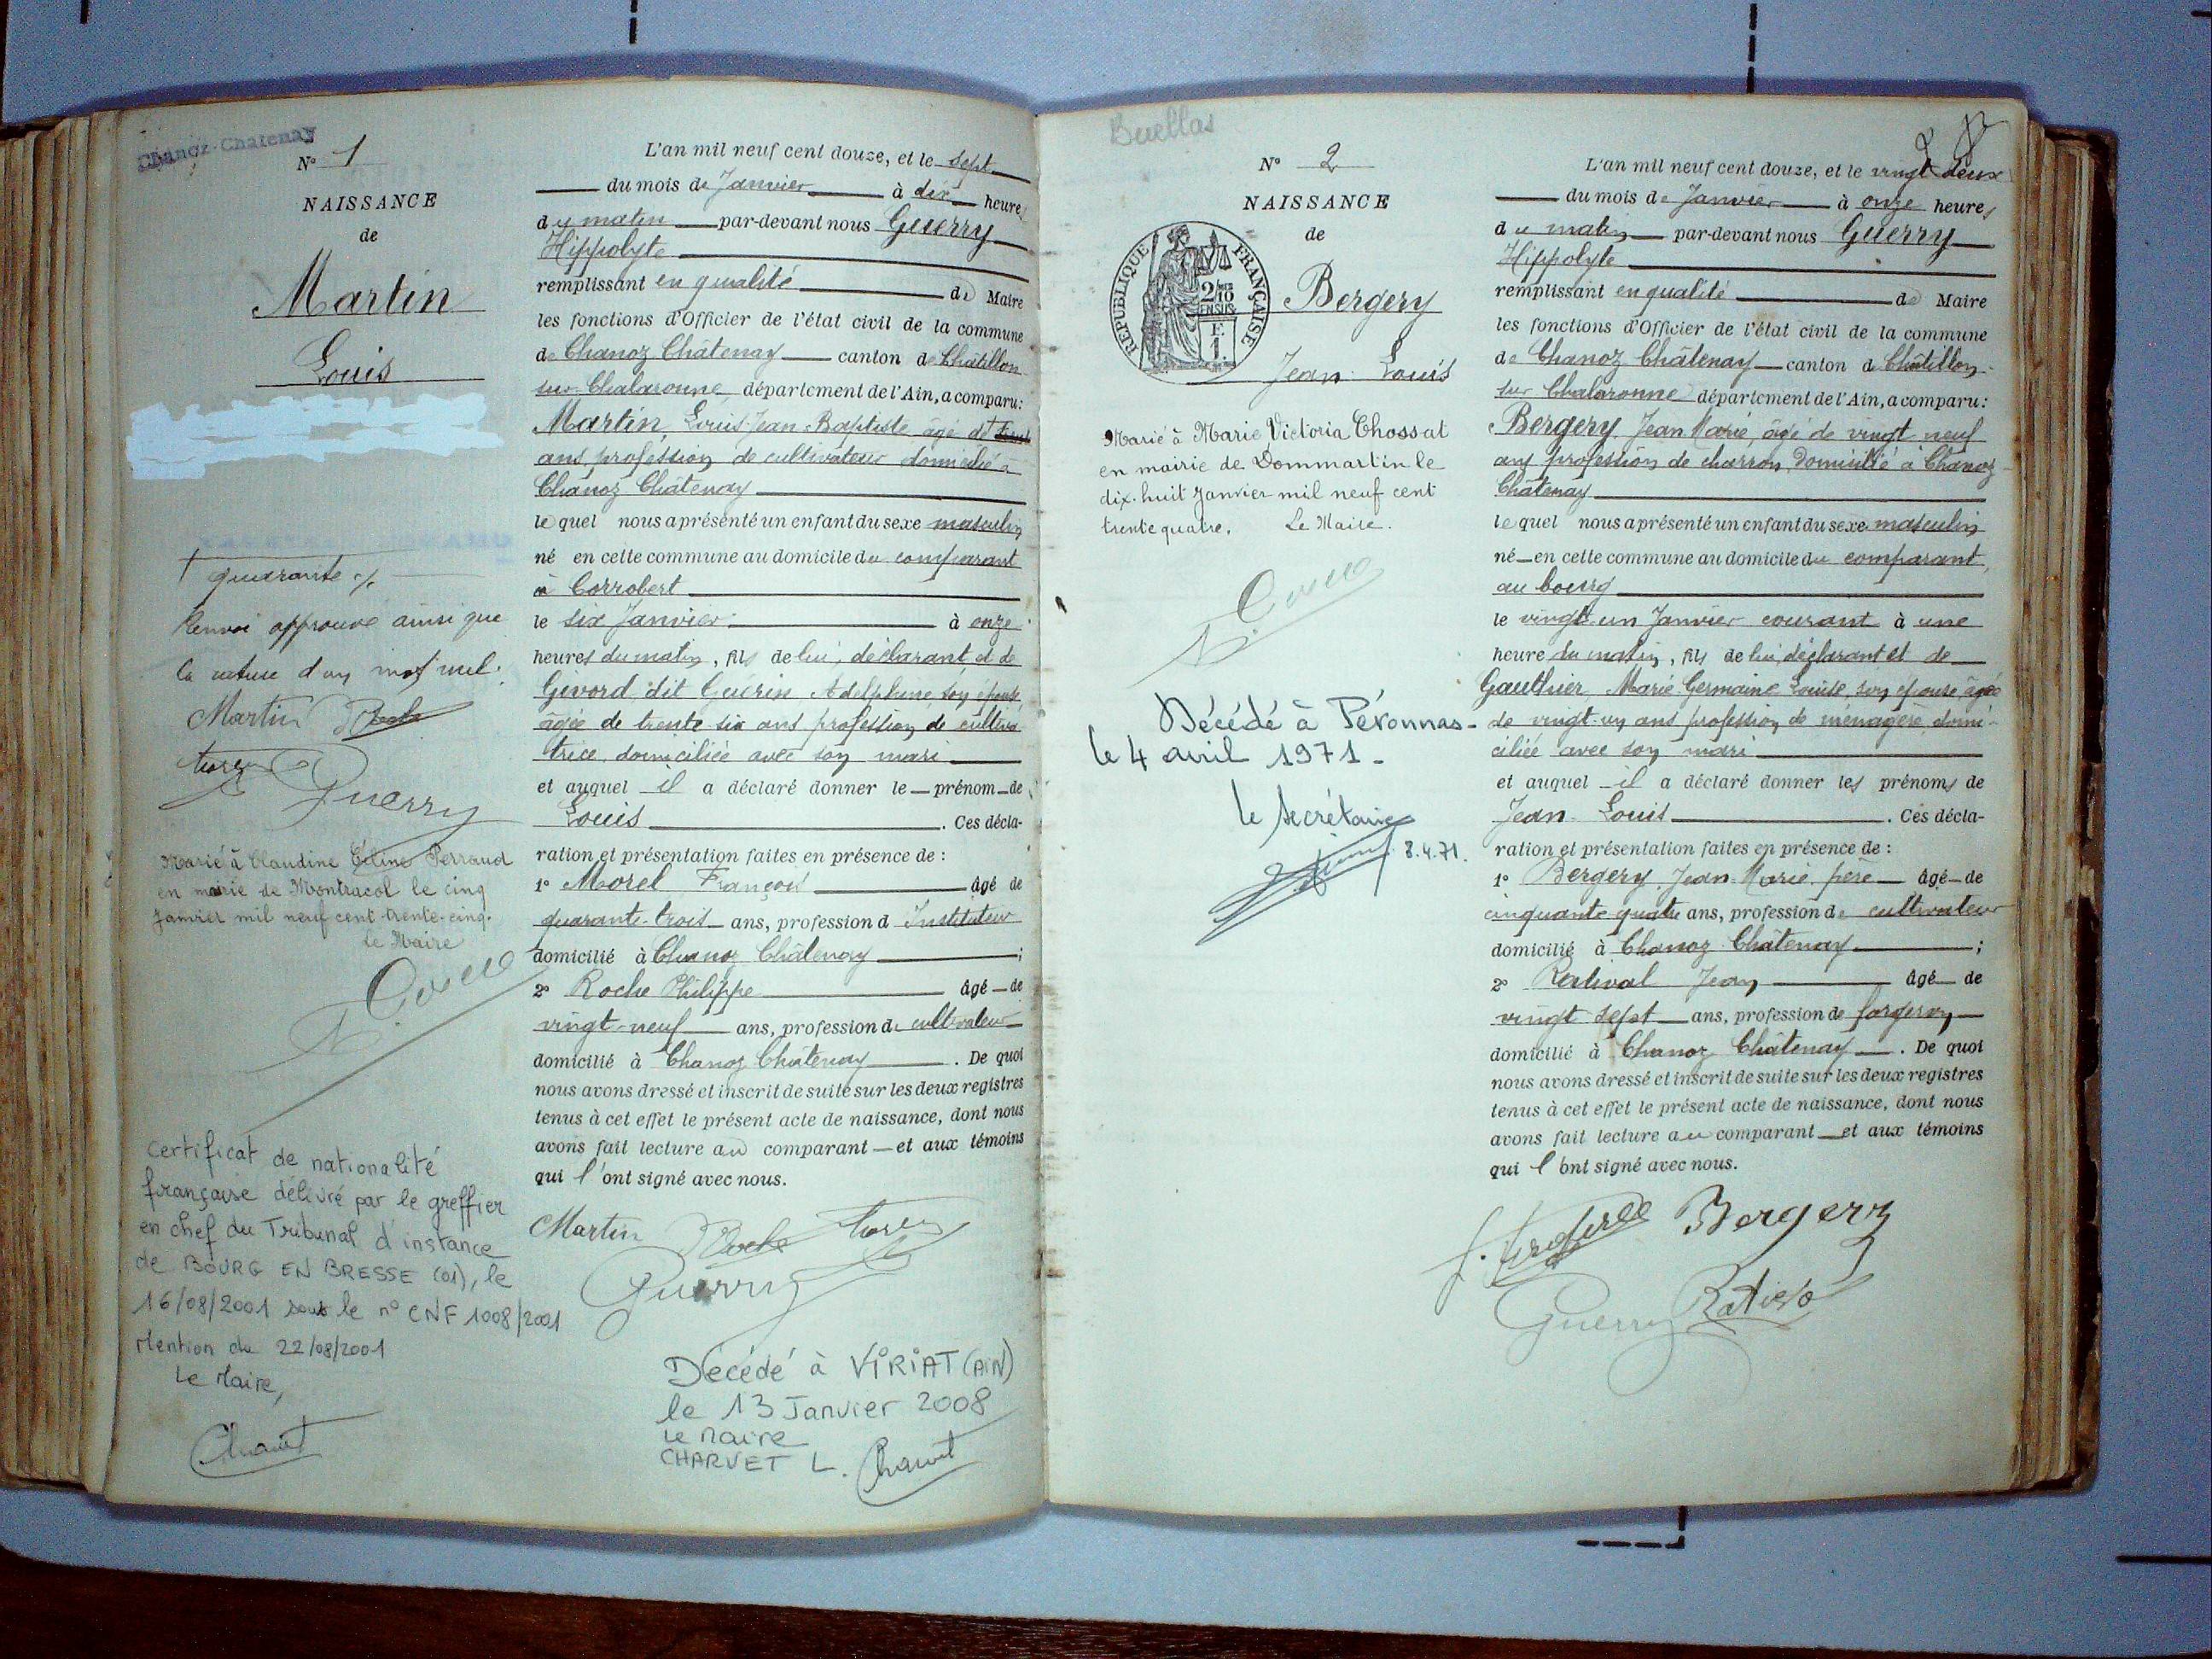 Chanoz-Chatenay
N° 1
NAISSANCE
de
Martin
Louis
† quarante ./.
Renvoi approuvé ainsi que
la rature d'un mot nul.
Martin PRoche
Morel
Guerry
Marié à Claudine Céline Perraud
en mairie de Montracol le cinq
Janvier mil neuf cent trente-cinq.
Le Maire
Certificat de nationalité
française délivré par le greffier
en chef du Tribunal d'instance
de BOURG EN BRESSE (01), le
16/08/2001 sous le n° CNF 1008/2001
Mention du 22/08/2001
Le Maire,
Charvet
L'an mil neuf cent douze, et le sept
du mois de Janvier à dix heures
du matin par-devant nous Guerry
Hippolyte
remplissant en qualité de Maire
les fonctions d'Officier de l'état civil de la commune
de Chanoz Châtenay canton de Châtillon
sur Chalaronne département de l'Ain, a comparu:
Martin, Louis Jean Baptiste âgé de
ans, profession de cultivateur domicilié à
Chanoz Châtenay
lequel nous a présenté un enfant du sexe masculin
né en cette commune au domicile du comparant
à Corrobert
le six Janvier à onze
heures du matin, fils de lui, déclarant, et de
Givord dit Guérin Adelphine, son épouse
âgée de trente-six ans profession de cultiva-
trice, domiciliée avec son mari
et auquel il a déclaré donner le prénom de
Louis . Ces décla-
ration et présentation faites en présence de :
1° Morel François âgé de
quarante-trois ans, profession d'Instituteur
domicilié à Chanoz Châtenay ;
2° Roche Philippe âgé de
vingt-neuf ans, profession de cultivateur
domicilié à Chanoz Châtenay . De quoi
nous avons dressé et inscrit de suite sur les deux registres
tenus à cet effet le présent acte de naissance, dont nous
avons fait lecture au comparant et aux témoins
qui l'ont signé avec nous.
Martin PRoche Morel
Guerry
Décédé à VIRIAT (AIN)
le 13 Janvier 2008
Le Maire
CHARVET L. Charvet
Buellas
N° 2
NAISSANCE
de
RÉPUBLIQUE FRANÇAISE
2/10 EN SUS
F. 1.
Bergery
Jean Louis
Marié à Marie Victoria Chossat
en mairie de Dommartin le
dix-huit Janvier mil neuf cent
trente quatre. Le Maire.
Décédé à Péronnas-
le 4 avril 1971-
le Secrétaire
8.4.71.
2
L'an mil neuf cent douze, et le vingt deux
du mois de Janvier à onze heures
du matin par-devant nous Guerry
Hippolyte
remplissant en qualité de Maire
les fonctions d'Officier de l'état civil de la commune
de Chanoz Châtenay canton de Châtillon-
sur Chalaronne département de l'Ain, a comparu:
Bergery, Jean Marie, âgé de vingt neuf
ans profession de charron, domicilié à Chanoz-
Châtenay
lequel nous a présenté un enfant du sexe masculin
né en cette commune au domicile du comparant,
au bourg
le vingt-un Janvier courant à une
heure du matin, fils de lui, déclarant et de
Gauthier Marie Germaine Louise, son épouse âgée
de vingt-un ans profession de ménagère, domi-
ciliée avec son mari
et auquel il a déclaré donner les prénoms de
Jean Louis . Ces décla-
ration et présentation faites en présence de :
1° Bergery, Jean Marie, père âgé de
cinquante quatre ans, profession de cultivateur
domicilié à Chanoz Châtenay ;
2° Jean âgé de
vingt sept ans, profession de forgeron
domicilié à Chanoz Châtenay . De quoi
nous avons dressé et inscrit de suite sur les deux registres
tenus à cet effet le présent acte de naissance, dont nous
avons fait lecture au comparant et aux témoins
qui l'ont signé avec nous.
Bergery
Guerry